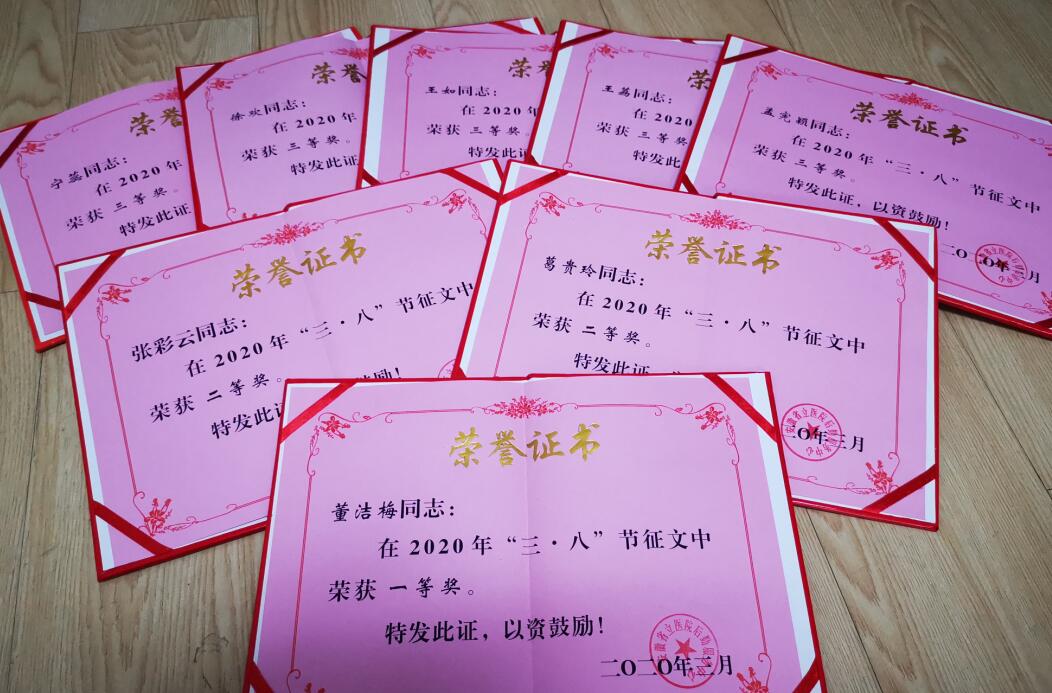 荣誉
宁蕊同志：
在2020年
荣获 三等奖。
特发此证
荣誉
徐欢同志：
在2020年
荣获 三等奖。
特发此证
荣誉
王如同志：
在2020年
荣获 三等奖。
特发此
荣
王荔同志：
在2020年
荣获 三等奖。
特发此
荣誉证书
孟宪颖同志：
在2020年“三·八”节征文中
荣获 三等奖。
特发此证，以资鼓励！
二〇二〇年 月
荣誉证书
张彩云同志：
在2020年“三·八”节征文中
荣获 二等奖。
特发此 鼓励！
荣誉证书
葛贵玲同志：
在2020年“三·八”节征文中
荣获 二等奖。
特发此证
安徽省立医院后勤服务中心
二〇年三月
荣誉证书
董洁梅同志：
在2020年“三·八”节征文中
荣获 一等奖。
特发此证，以资鼓励！
安徽省立医院后勤服务中心
二〇二〇年三月